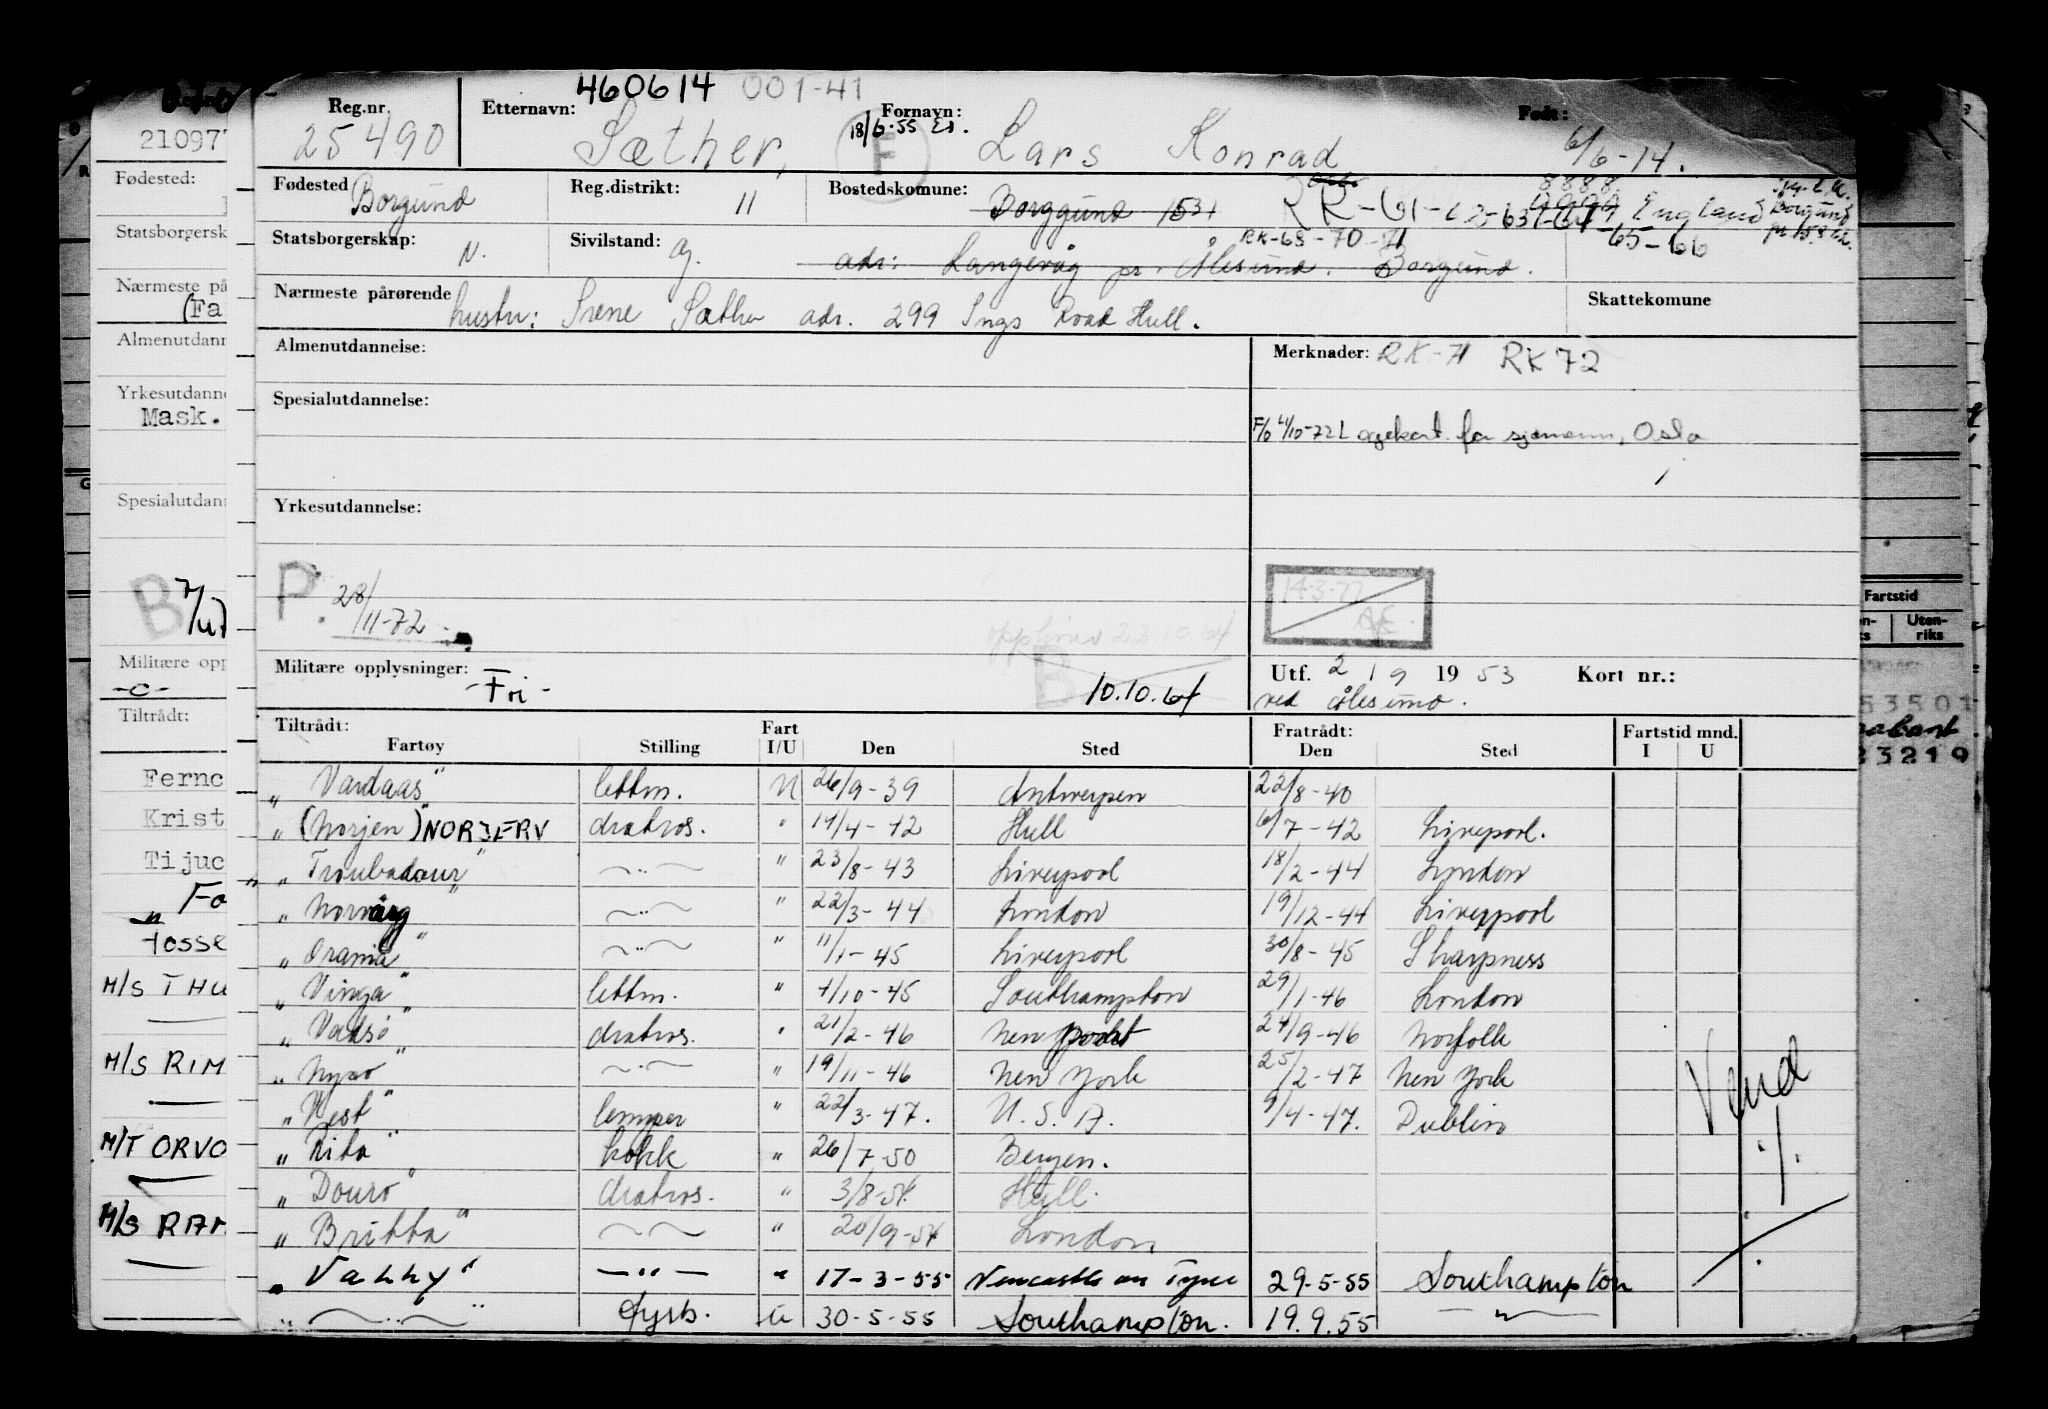 460614 001-41
Reg.nr. Etternavn: Fornavn: Født:
25490 Sæther, 18/6-55 E Lars Konrad 6/6-14.
Fødested Borgund Reg.distrikt: 11 Bostedskomune: Borggund 1531 RK-61- England
Statsborgerskap: N. Sivilstand: g. RK-68-70-71 65-66
adr: Langevåg pr. Ålesund. Borgund.
Nærmeste pårørende hustru: Irene Sæther adr. 299 Ings Road Hull. Skattekomune
Almenutdannelse: Merknader: RK-71 RK72
Spesialutdannelse:
F/6 4/10-72 for sjømenn, Oslo
Yrkesutdannelse:
P. 28/11-72
14-3-77
22.10.64
B
Militære opplysninger: -Fri- 10.10.64 Utf. 2/9 1953 Kort nr.:
ved Ålesund.
Tiltrådt: Fart Fratrådt: Fartstid mnd.
Fartøy Stilling I/U Den Sted Den Sted I U
„Vardaas" lettm. U 26/9-39 Antwerpen 22/8-40
„(Norjen)" NORJERV matros. " 14/4-42 Hull 6/7-42 Liverpool.
„Troubadour" —"— " 23/8-43 Liverpool 18/2-44 London
„Norvarg" —"— " 22/3-44 London 19/12-44 Liverpool
„Orania" —"— " 11/1-45 Liverpool 30/8-45 Sharpness
„Vinga" lettm. " 4/10-45 Southampton 29/1-46 London
„Vadsø" matros. " 21/2-46 New Port 24/9-46 Norfolk
„Nyso" —"— " 19/11-46 New York 25/2-47 New York
„Vest" lemper " 22/3-47. U.S.A. 9/4-47. Dublin
„Rita" kokk " 26/7-50 Bergen.
„Douro" matros. " 3/8-54 Hull.
„Britta" —"— " 20/9-54 London
„Vanny" —"— " 17-3-55 Newcastle on Tyne 29-5-55 Southampton
—"— " fyrb. U 30-5-55 Southampton. 19.9.55 —"—
Vend
./.
210977
Fødested:
Statsborgersk
Nærmeste på
(Fa
Almenutdann
Yrkesutdanne
Mask.
Spesialutdann
B 7/
Militære opp
-C-
Tiltrådt:
Fernc
Krist
Tijuc
„Fo
fosse
M/S THU
M/S RIM
M/T ORVO
M/S RAN
Fartstid
Uten-
riks
53501
23219